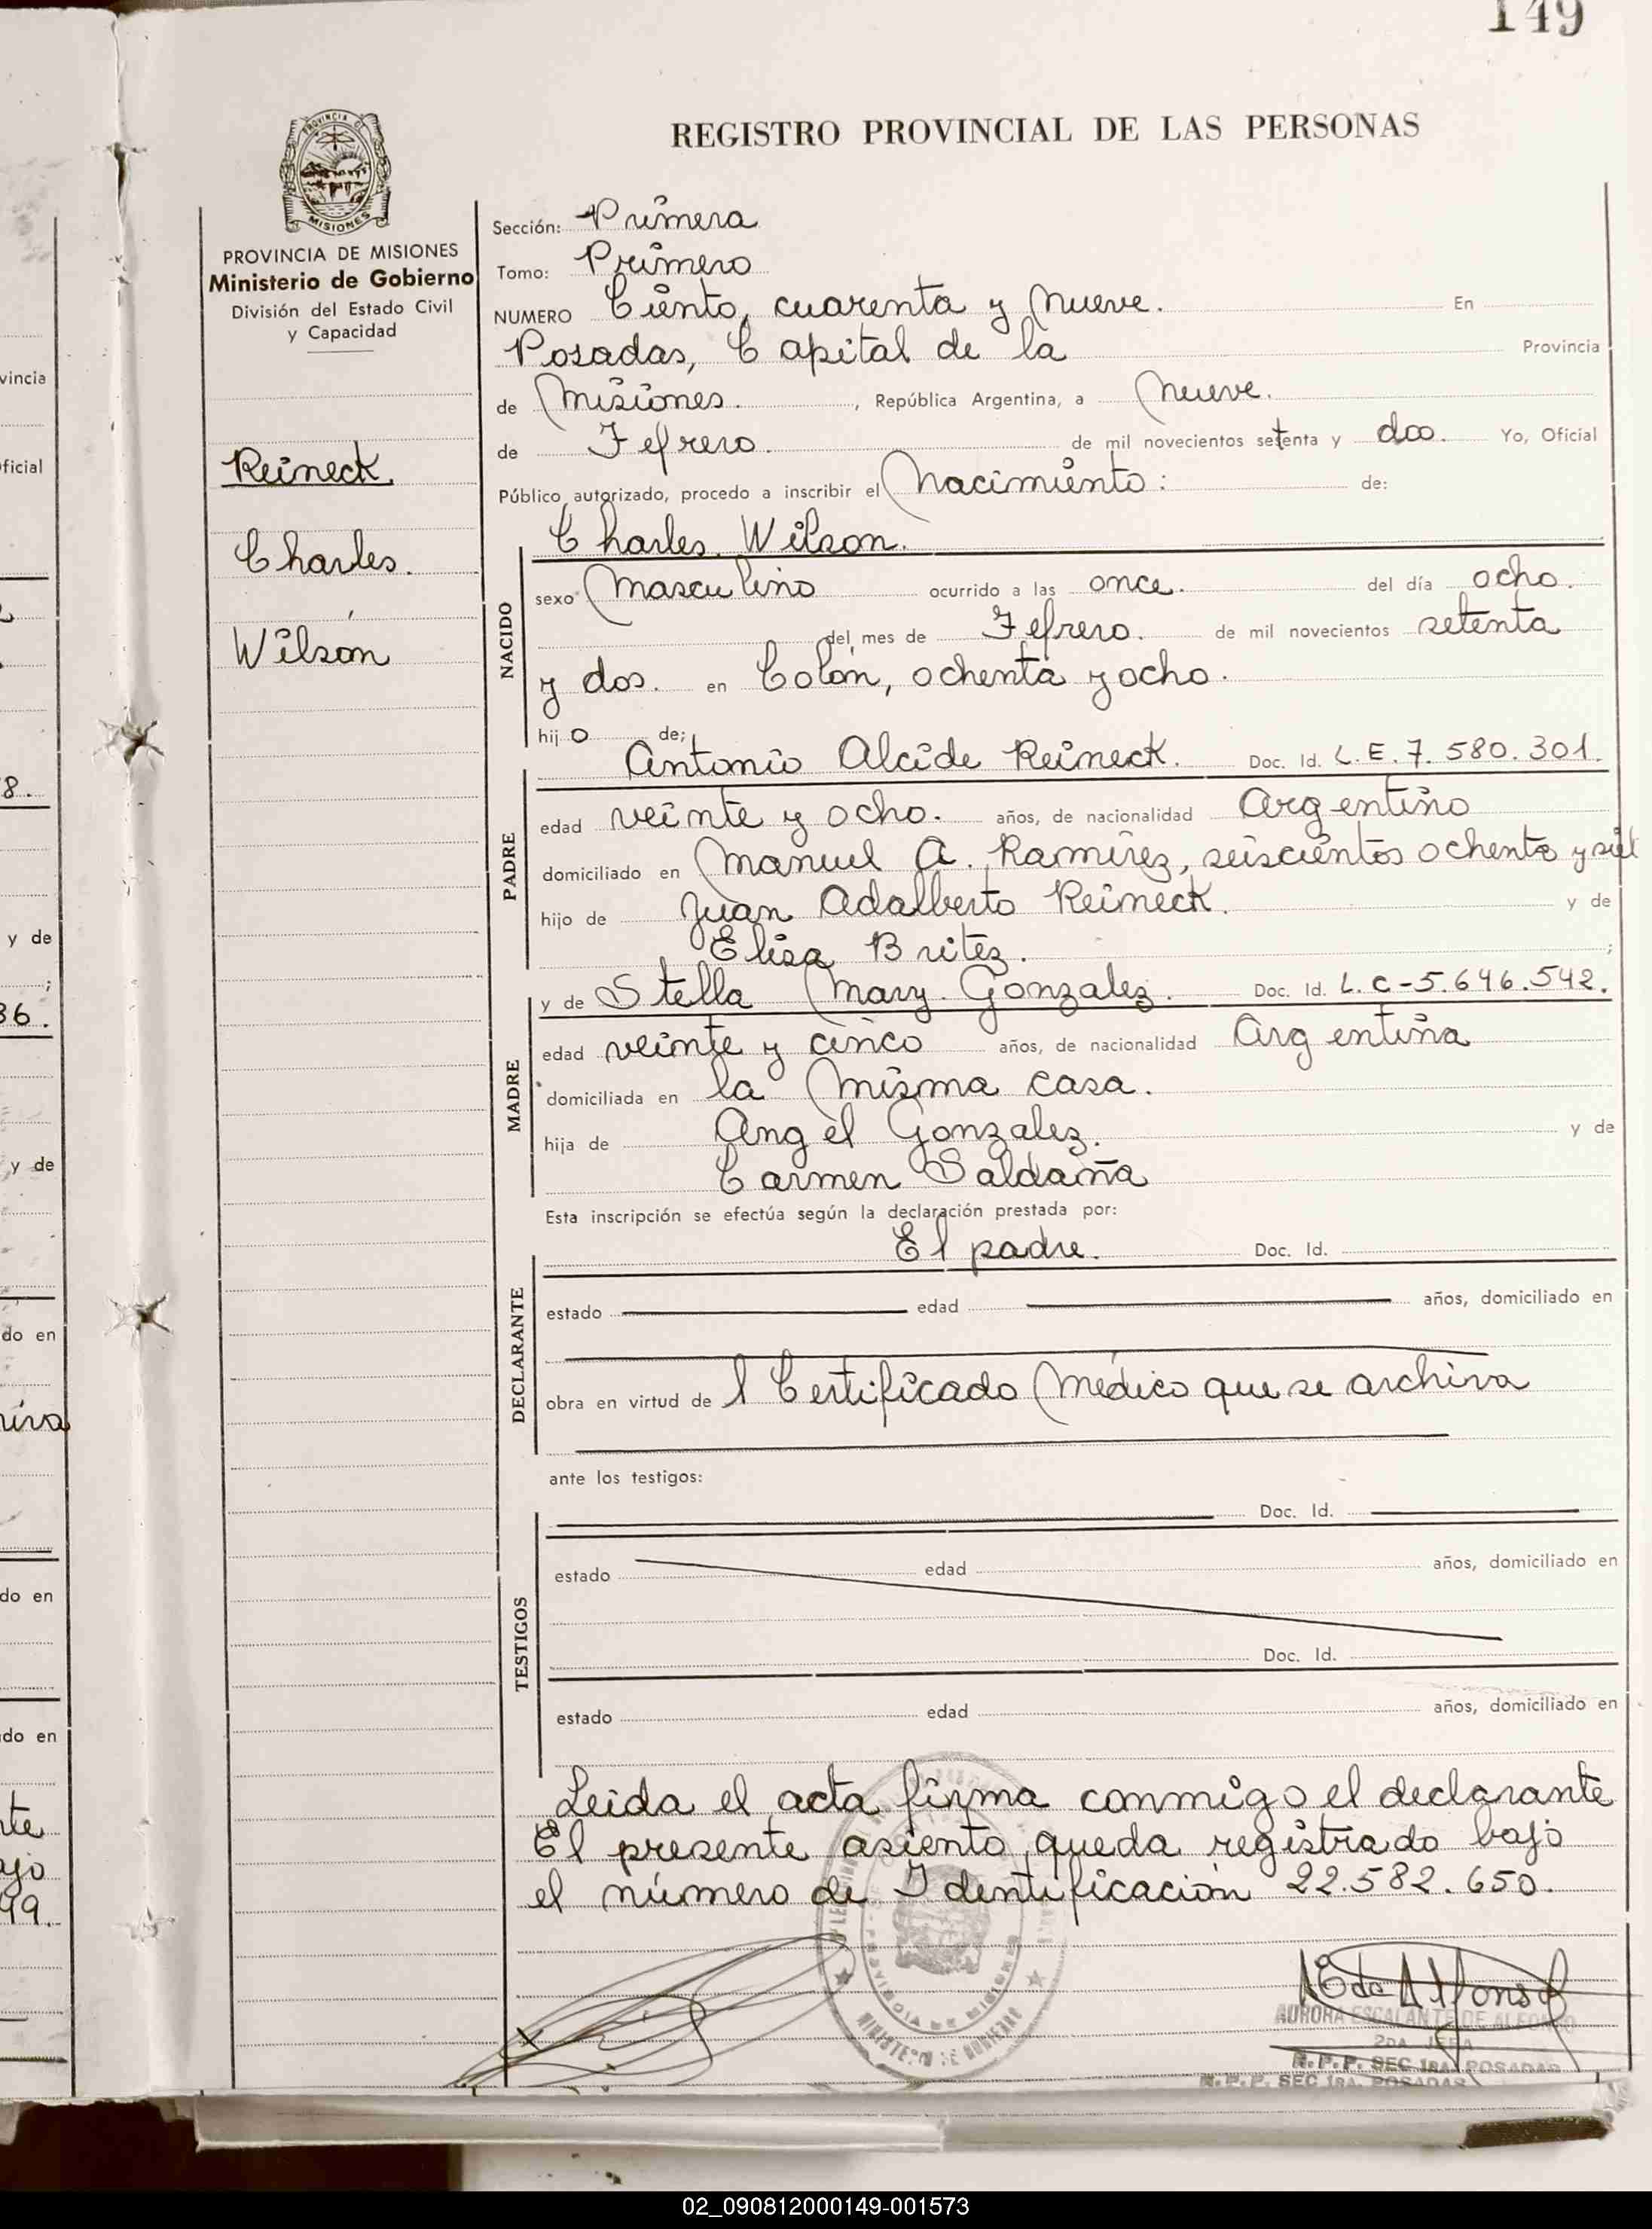 149
REGISTRO PROVINCIAL DE LAS PERSONAS
PROVINCIA DE MISIONES
Ministerio de Gobierno
División del Estado Civil
y Capacidad
Reineck
Charles.
Wilson
Sección: Primera
Tomo: Primero
NUMERO Ciento, cuarenta y nueve. En
Posadas, Capital de la Provincia
de Misiones. , República Argentina, a nueve.
de Febrero. de mil novecientos setenta y dos. Yo, Oficial
Público autorizado, procedo a inscribir el nacimiento: de:
Charles Wilson.
NACIDO
sexo Masculino ocurrido a las once. del día ocho.
del mes de Febrero. de mil novecientos setenta
y dos. en Colón, ochenta y ocho.
hijo de;
Antonio Alcide Reineck. Doc. Id. L.E. 7.580.301.
PADRE
edad veinte y ocho. años, de nacionalidad Argentino
domiciliado en Manuel A. Ramírez, seiscientos ochenta y siet
hijo de Juan Adalberto Reineck. y de
Elisa Britez. ;
y de Stella Mary Gonzalez. Doc. Id. L.C-5.646.542.
MADRE
edad veinte y cinco años, de nacionalidad Argentina
domiciliada en la misma casa.
hija de Angel Gonzalez. y de
Carmen Saldaña
Esta inscripción se efectúa según la declaración prestada por:
El padre. Doc. Id.
DECLARANTE
estado edad años, domiciliado en
obra en virtud de l Certificado Médico que se archiva
ante los testigos:
Doc. Id.
TESTIGOS
estado edad años, domiciliado en
Doc. Id.
estado edad años, domiciliado en
Leida el acta firma conmigo el declarante
El presente asiento queda registrado bajo
el número de Identificación 22.582.650.
PROVINCIA DE MISIONES
MINISTERIO DE GOBIERNO
AURORA ESCALANTE DE ALFONSO
2DA. JEFA
R.P.P. SEC 1RA. POSADAS
R.P.P. SEC 1RA. POSADAS
02_090812000149-001573